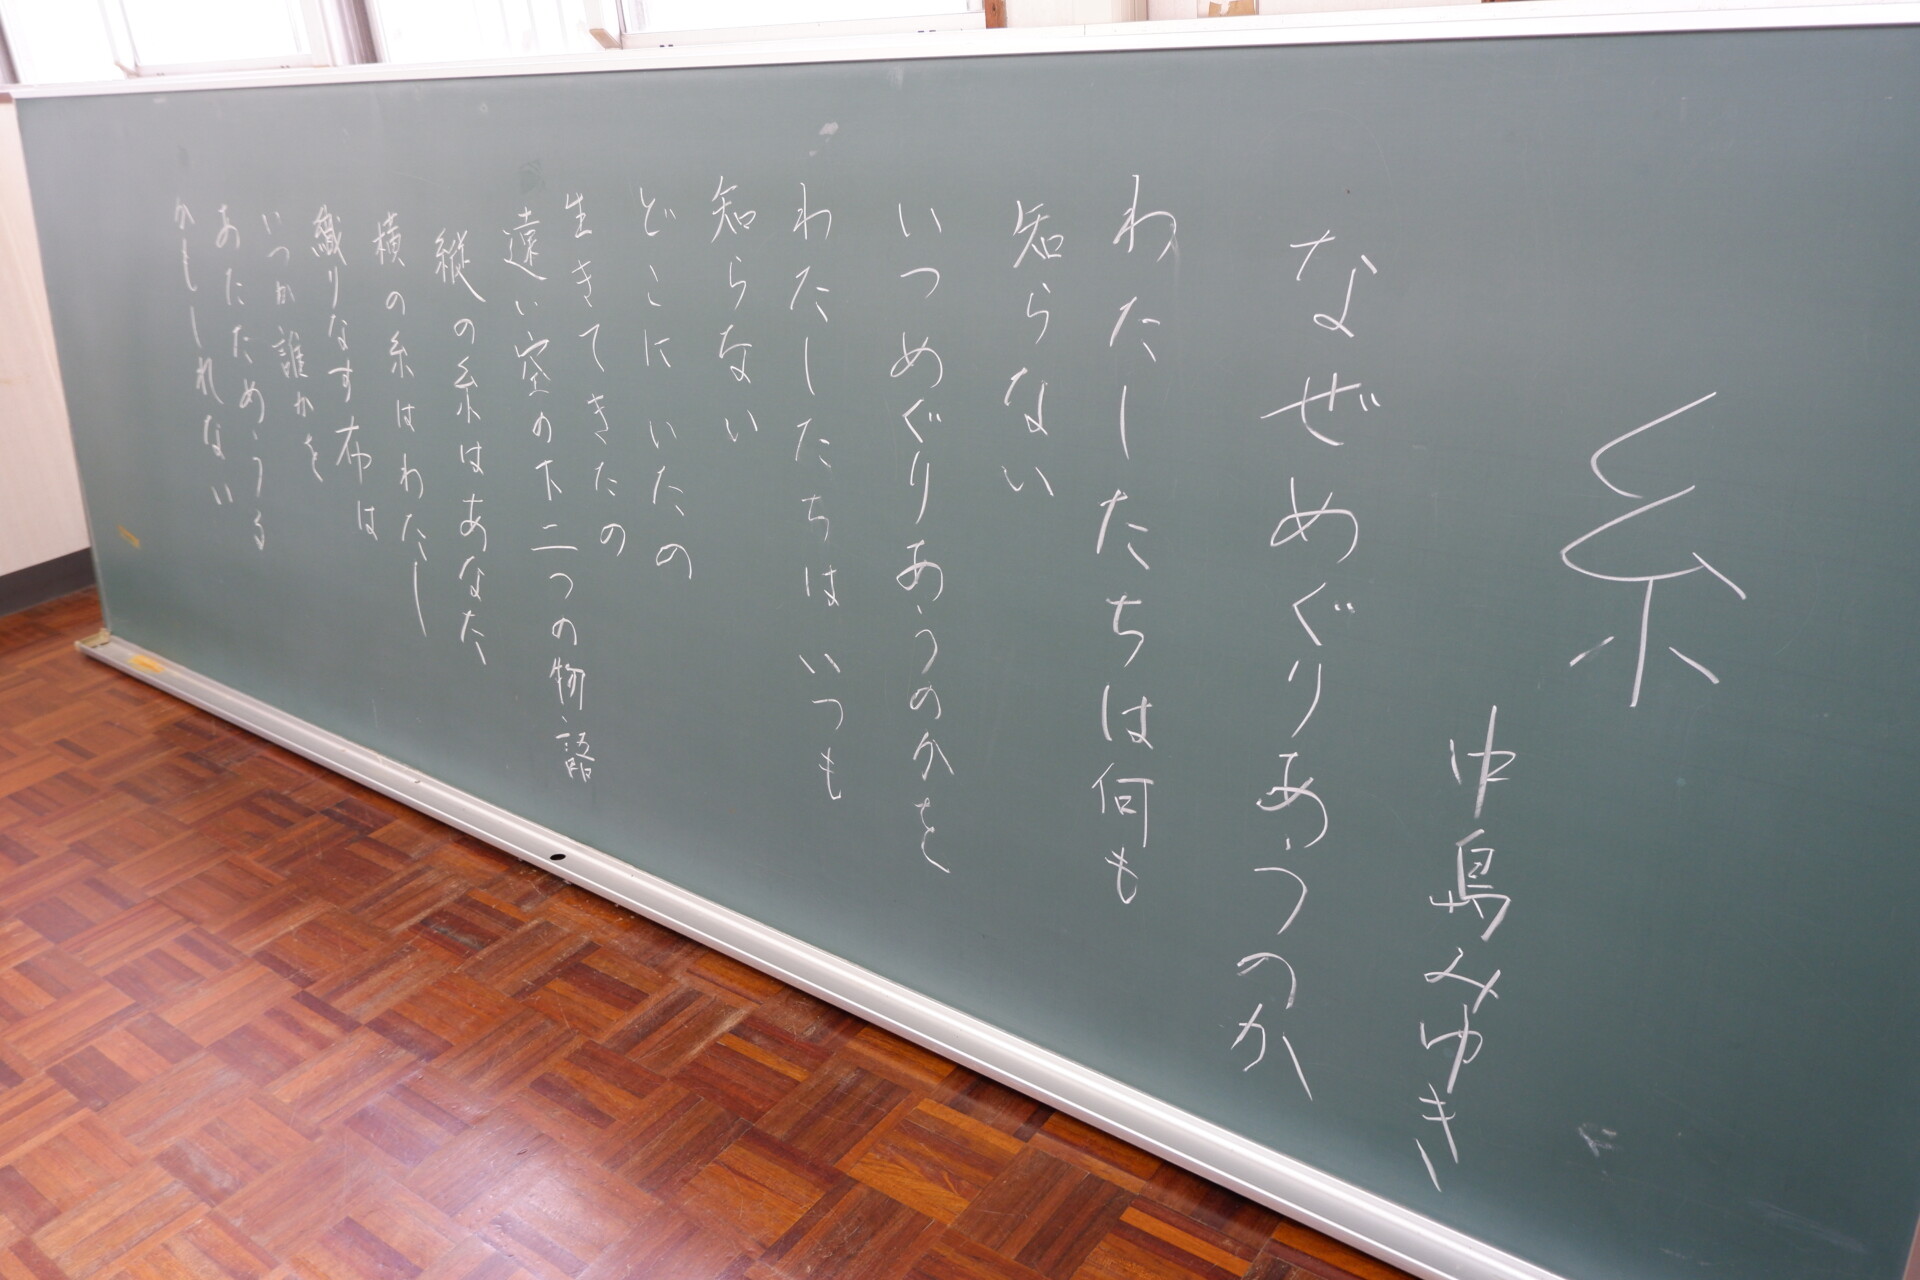 糸
中島みゆき
なぜめぐりあうのか
わたしたちは何も
知らない
いつめぐりあうのかを
わたしたちはいつも
知らない
どこにいたの
生きてきたの
遠い空の下二つの物語
縦の糸はあなた
横の糸はわたし
織りなす布は
いつか誰かを
あたためうる
かもしれない